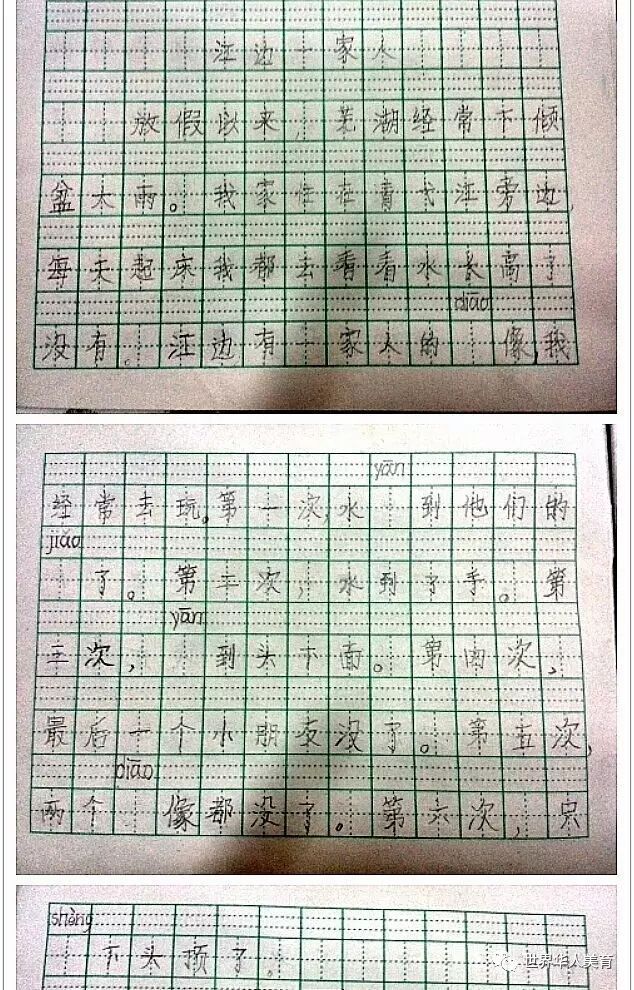 江边一家人
放假以来，芜湖经常下倾
盆大雨。我家住在青弋江旁边，
每天起床我都去看看水长高了
diāo
没有。江边有一家人的像，我
yān
经常去玩。第一次，水到他们的
jiǎo
了。第二次，水到了手。第
yān
三次，到头下面。第四次，
最后一个小朋友没了。第五次，
diāo
两个像都没了。第六次，只
shèng
下头顶了。
世界华人美育